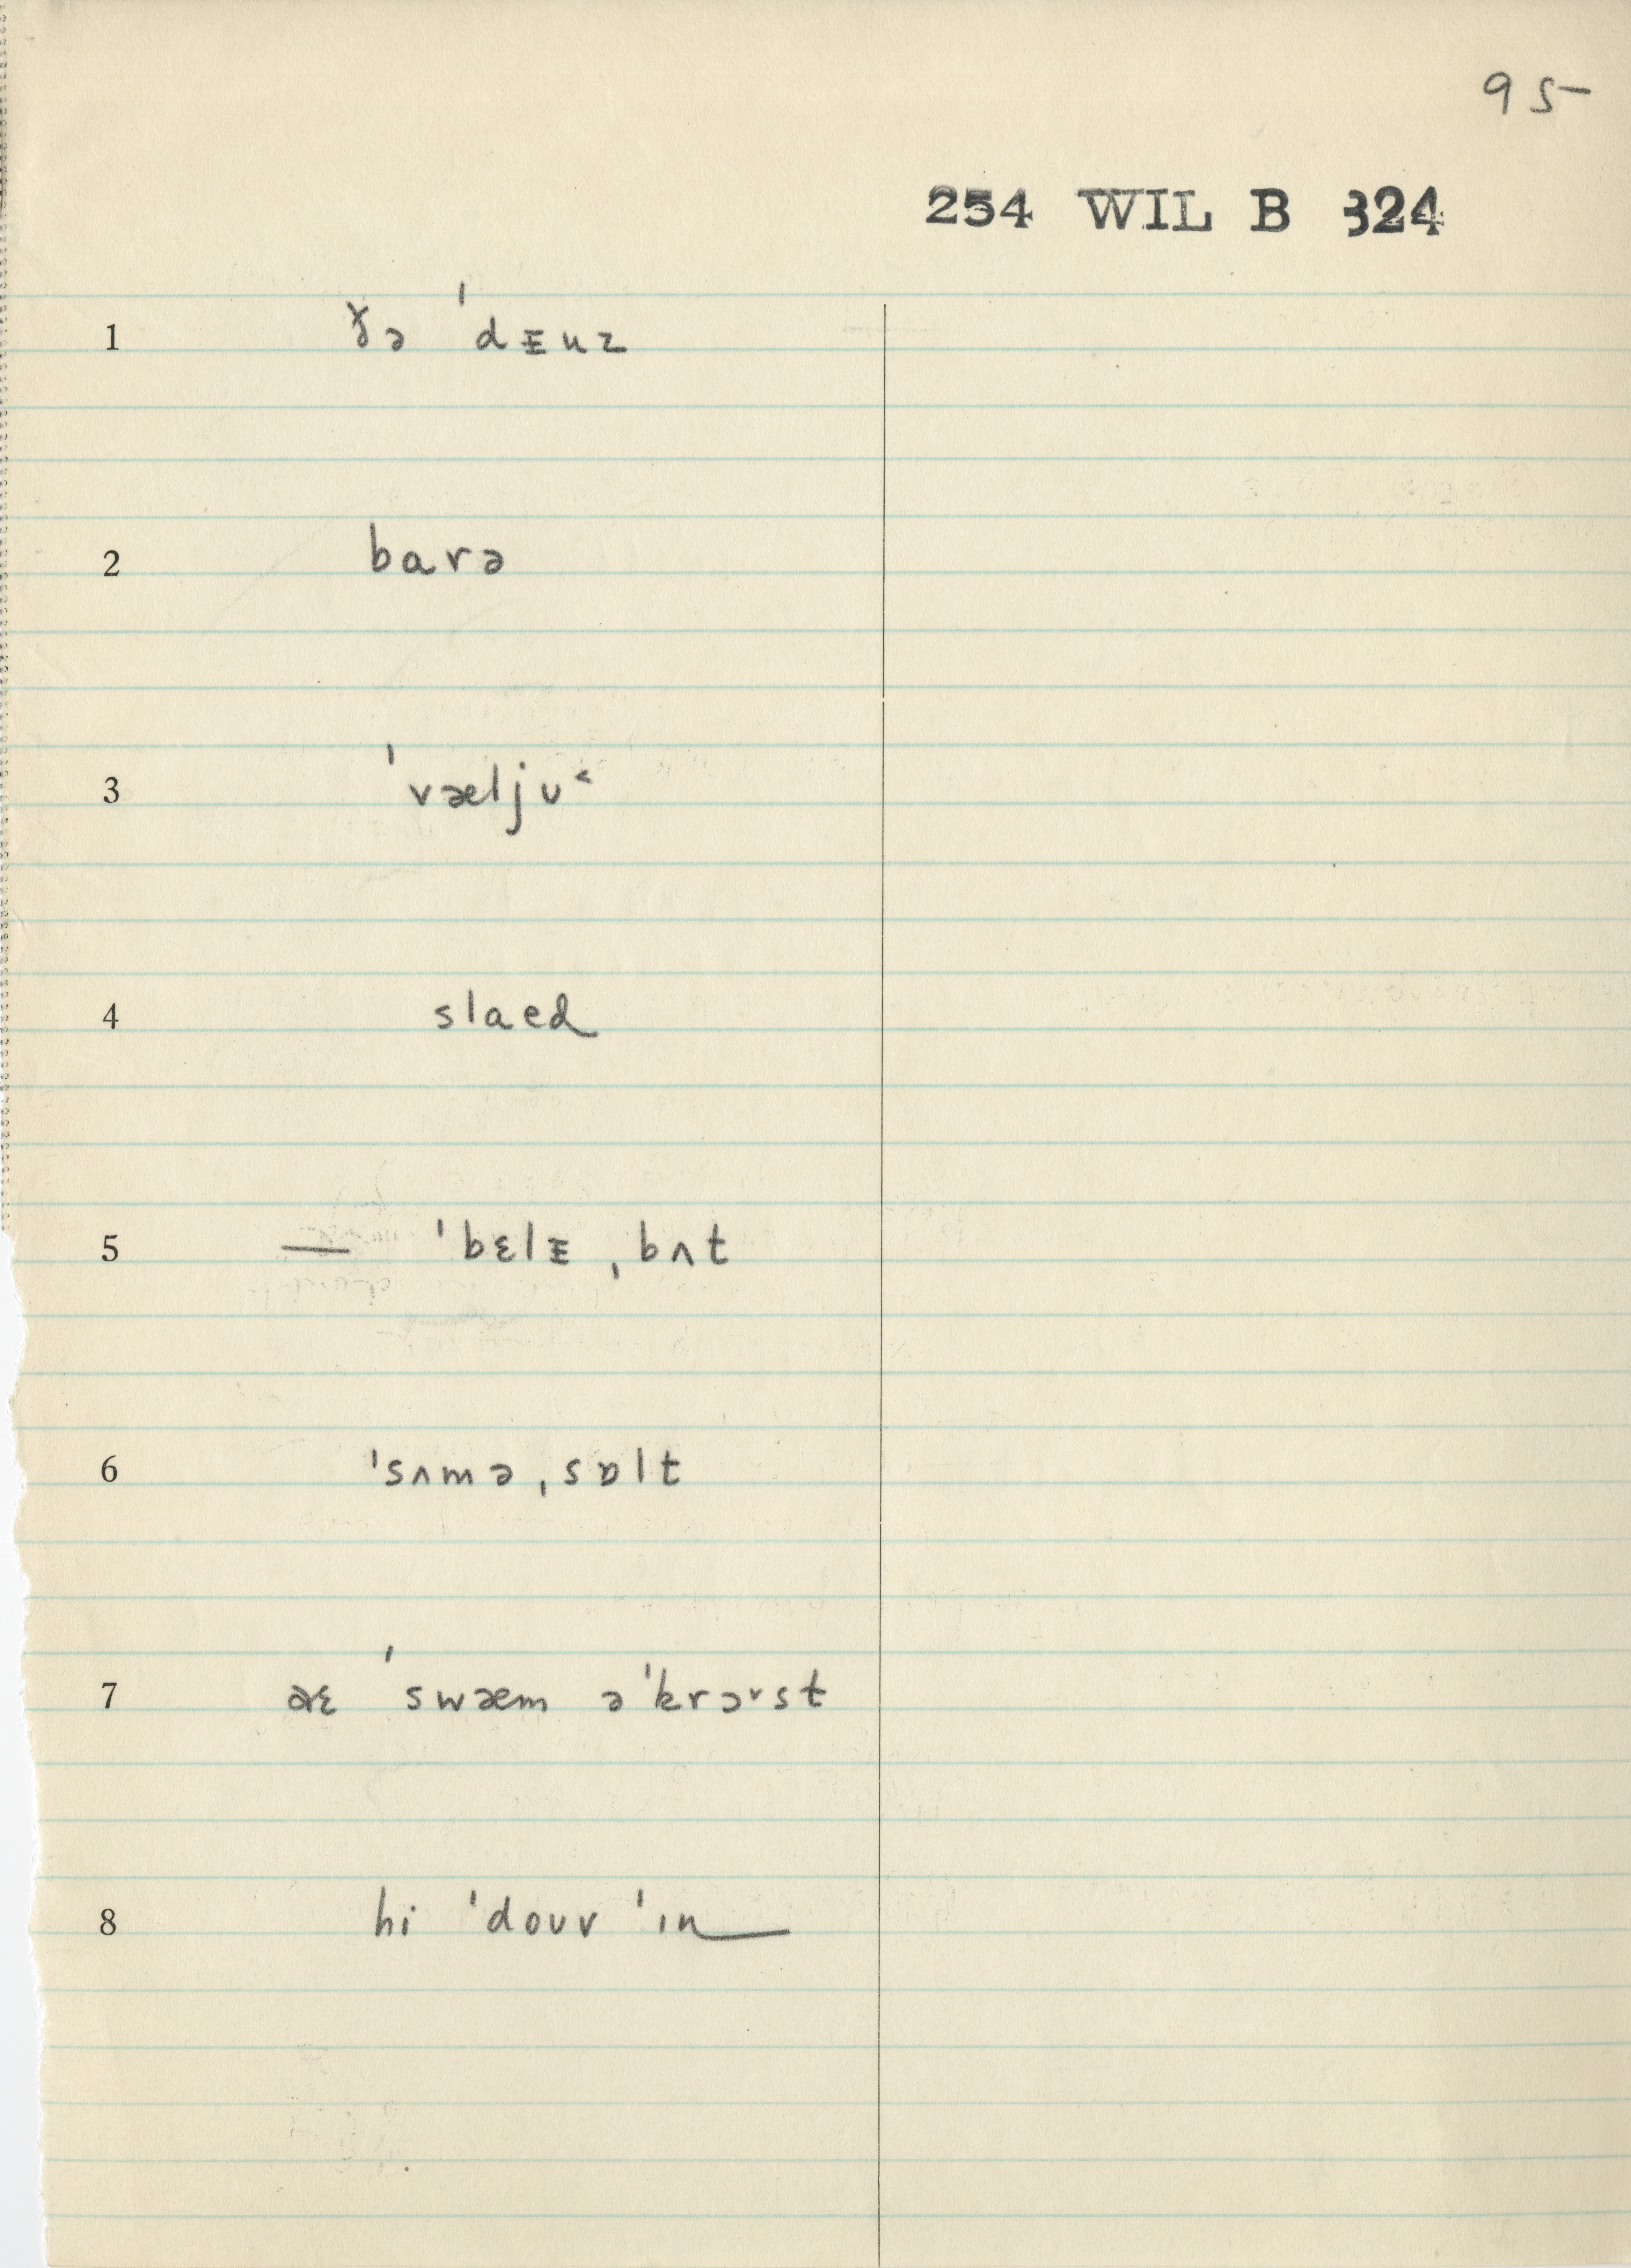 95
254 WIL B 324
1 ðə ˈdᵻnz
2 barə
3 ˈvæljʊ˂
4 slaed
5 — ˈbɛlᵻ ˌbʌt
6 ˈsʌmə ˌsɒlt
7 aɛ ˈswæm əˈkrɔ˅st
8 hi ˈdouv ˈɪn